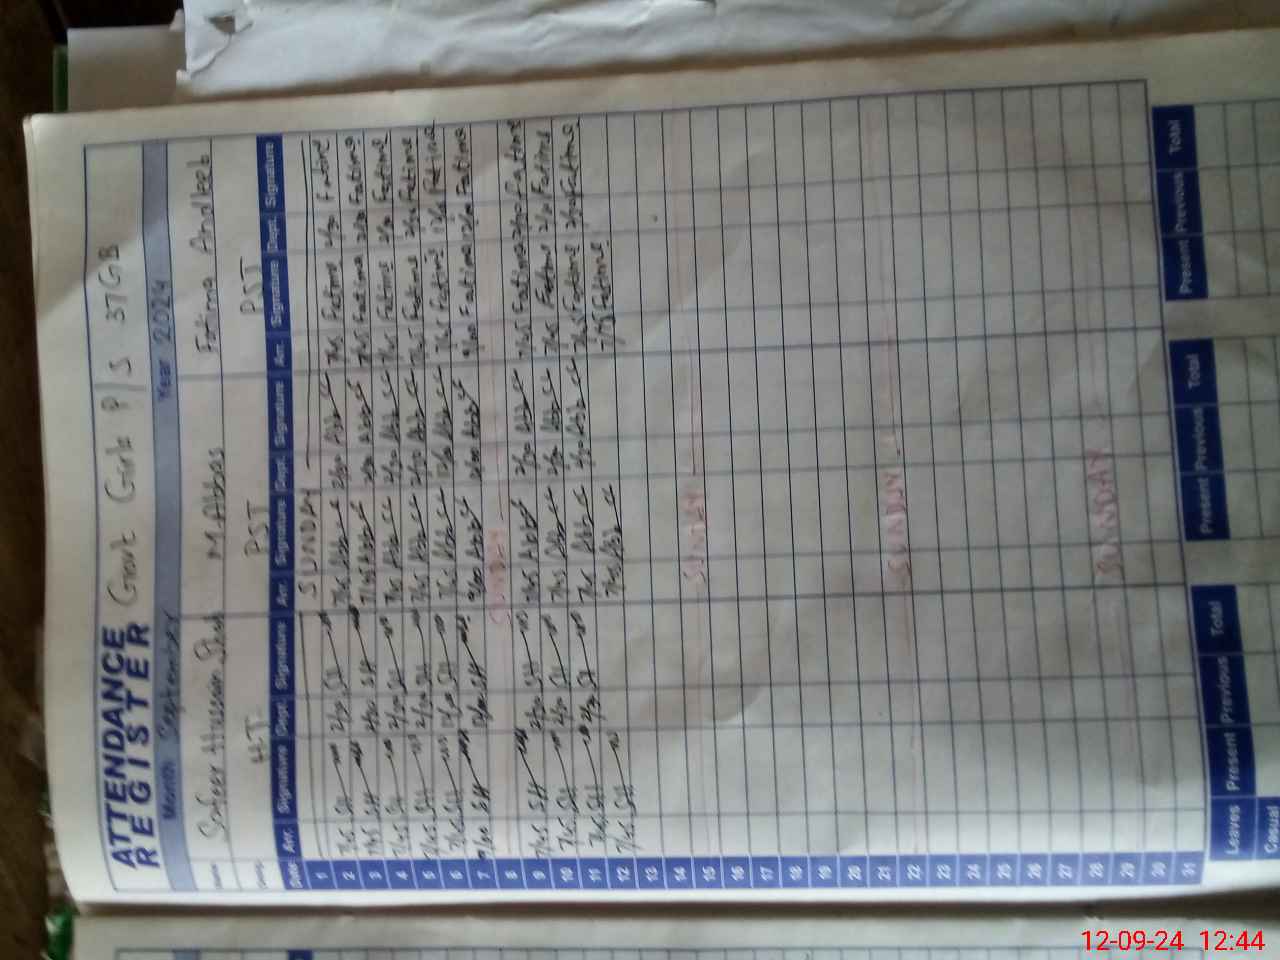 ATTENDANCE REGISTER Govt Girls P/S 37GB
Month September Year 2024
Name Safeer Hussain Shah M.Abbas Fatima Andleeb
H.T. PST PST
Date Arr. Signature Dept. Signature Arr. Signature Dept. Signature Arr. Signature Dept. Signature
1 SUNDAY
2 7/45 SH 2/30 SH 7/45 2/30 7/45 Fatima 2/30 Fatima
3 7/45 SH 2/30 SH 7/45 2/30 7/45 Fatima 2/30 Fatima
4 7/45 SH 2/30 SH 7/45 2/30 7/45 Fatima 2/30 Fatima
5 7/45 SH 2/30 SH 7/45 2/30 7/45 Fatima 2/30 Fatima
6 7/45 SH 12/00 SH 7/45 12/00 7/45 Fatima 12/00 Fatima
7 SH SH Fatima Fatima
8 SUNDAY
9 7/45 SH 2/30 SH 7/45 2/30 7/45 Fatima 2/30 Fatima
10 7/45 SH 2/30 SH 7/45 2/30 7/45 Fatima 2/30 Fatima
11 7/45 SH 2/30 SH 7/45 2/30 7/45 Fatima 2/30 Fatima
12 7/45 SH 7/45 7/45 Fatima
13
14
15 SUNDAY
16
17
18
19
20
21
22 SUNDAY
23
24
25
26
27
28
29 SUNDAY
30
31
Leaves Present Previous Total Present Previous Total Present Previous Total
Casual
12-09-24 12:44